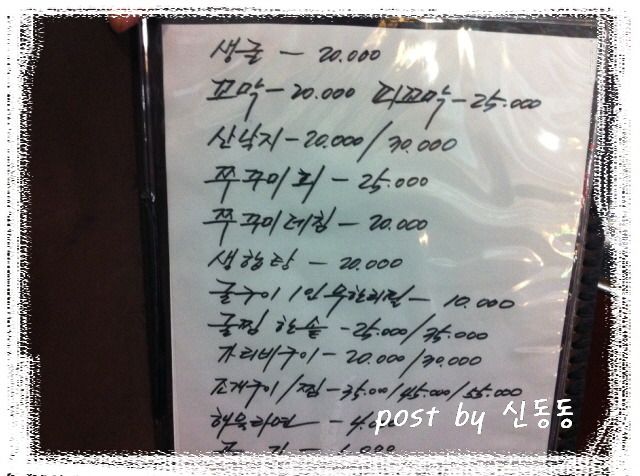 생굴 - 20.000
꼬막 - 20.000 피꼬막 - 25.000
산낙지 - 20.000/30.000
쭈꾸미회 - 25.000
쭈꾸미데침 - 20.000
생합탕 - 20.000
굴구이 1인 무한리필 - 10.000
굴찜 한솥 - 25.000/35.000
가리비구이 - 20.000/30.000
조개구이/찜 - 35.000/45.000/55.000
해물라면 -
post by 신동동